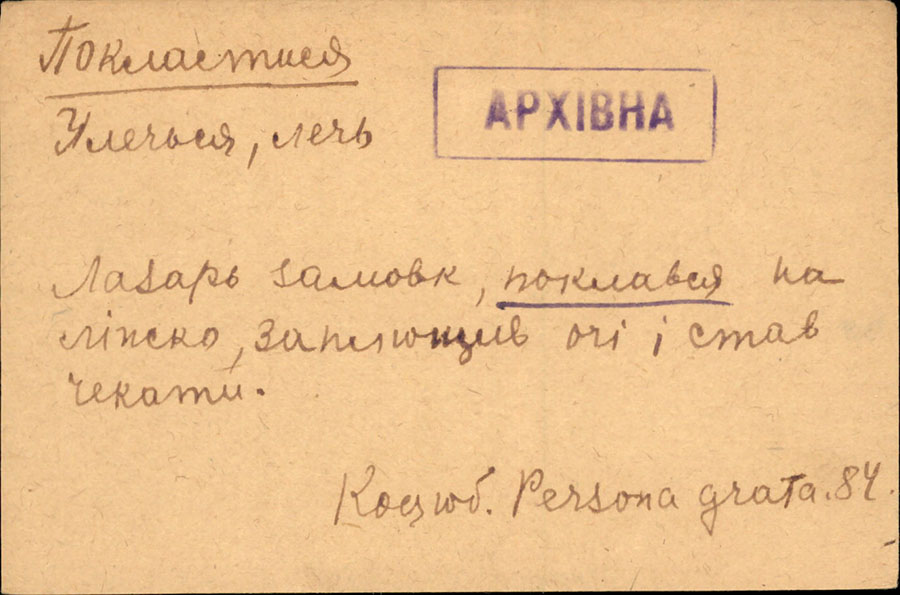 Покластися
АРХІВНА
Улечься, лечь
Лазарь замовк, поклався на
ліжко, заплющив очі і став
чекати.
Коцюб. Persona grata. 84.